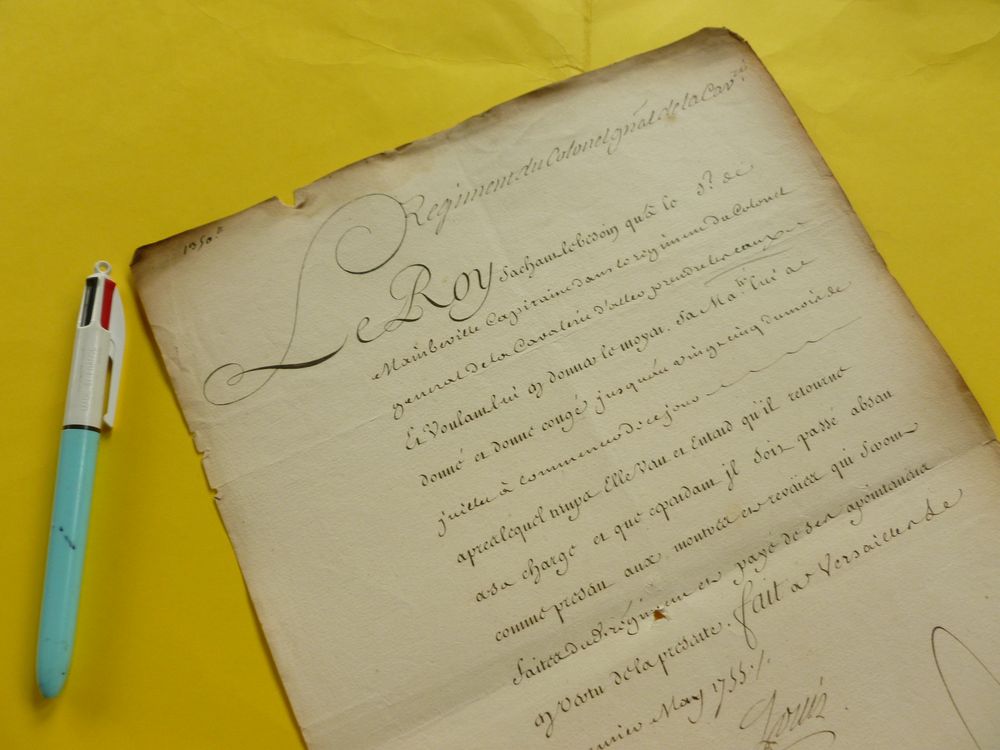 Regiment du Colonel gñal de la Cav.rie
Le Roy Sachant le besoin qu'à le S.r de
Mainbeville Capitaine dans le regiment du Colonel
general de la Cavalerie d'aller prendre les eaux
Et Voulant luy donner le moyen. Sa Ma.té lui a
donné et donne congé jusqu'au vingt cinq du mois de
juillet à commencer de ce jour
apres lequel temps Elle Veut et Entend qu'il retourne
a sa charge et que cependant il soit passé absent
comme present aux montres et reveües qui seront
faites du d. régiment et payé de ses apointements
en vertu de la presente. fait a Versailles le
May 1755.
Louis